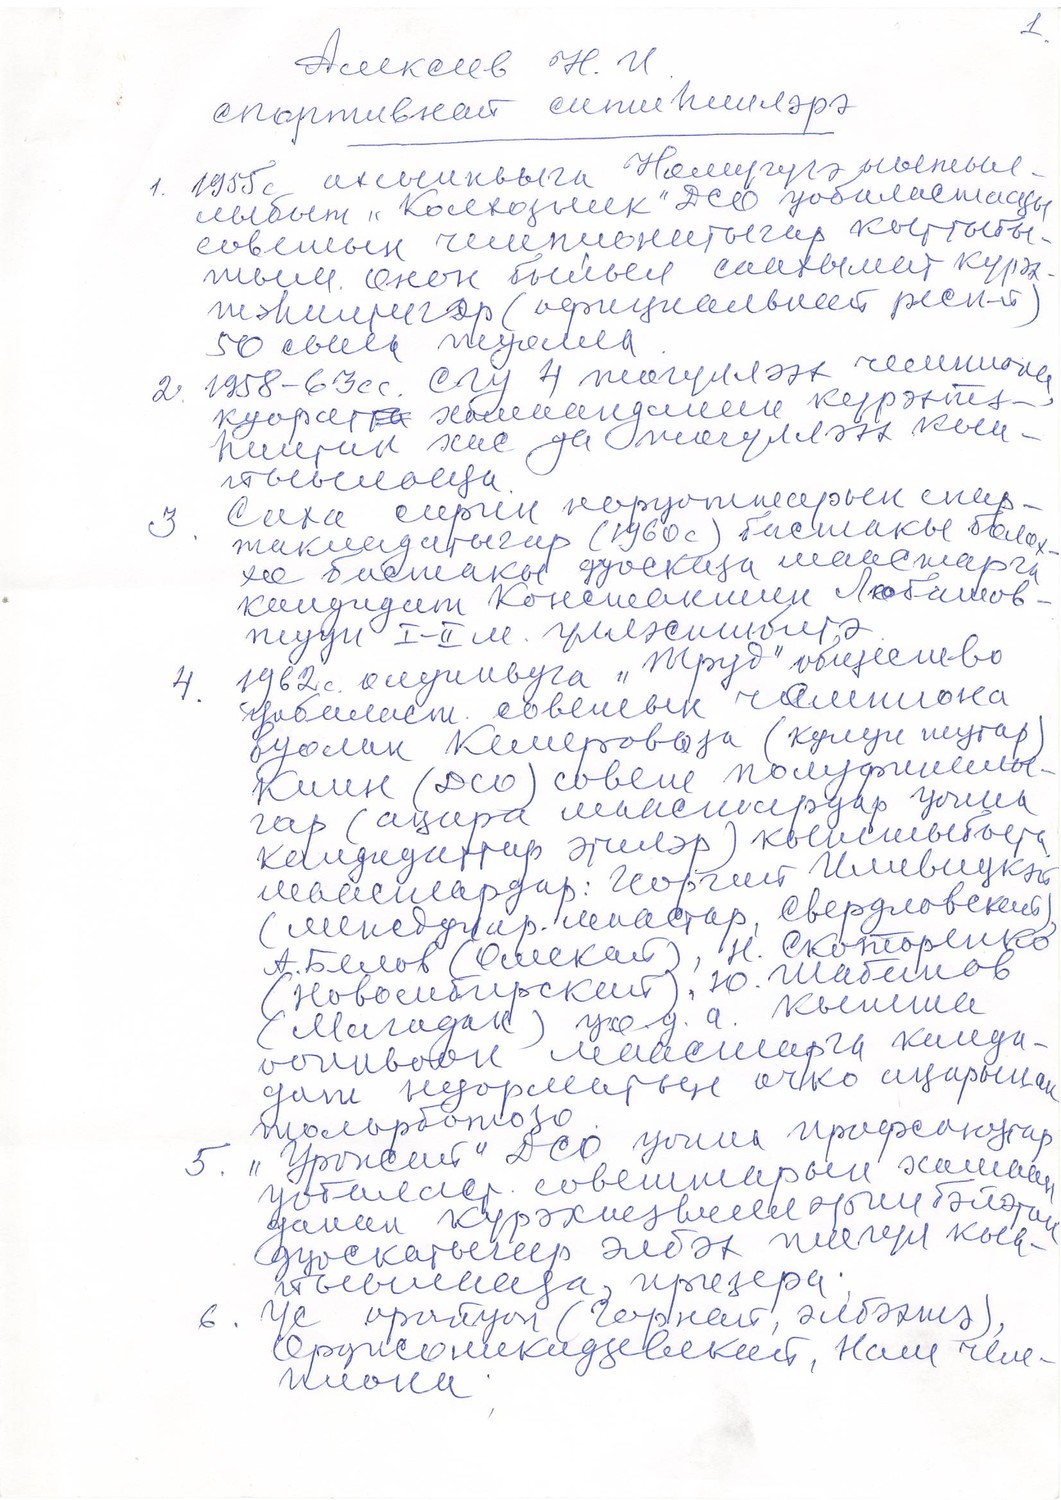 1.
Алексеев Н. И.
спортивнай ситиһиилэрэ
1. 1955с ахсынньыга Нөмүгүгэ ыытыл-
лыбыт „Колхозник" ДСО уобаластааҕы
советын чемпионатыгар кыттыбы-
тым. Онон быйыл саахымат күрэх-
тэһиитигэр (официальнай респ-й)
50 сыла туолла
2. 1958-63сс. СГУ 4 төгүллээх чемпиона,
куорат хамаанданан күрэхтэ-
һиитин хас да төгүллээх кыа-
йыылааҕа.
3. Саха сирин норуоттарын спар-
такиадатыгар (1960с) бастакы болох-
хо бастакы дуоскаҕа маастарга
кандидат Константин Любимов-
туун I-II м. үллэстибитэ
4. 1962с. олунньуга „Труд" общество
уобаласт. советын чемпиона
буолан Кемероваҕа (кулун тутар)
Киин (ДСО) совет полуфиналы-
гар (аҥара маастардар уонна
кандидаттар этилэр) кыттыбыта
маастардар: Георгий Иливицкэй
(междунар. маастар, Свердловскай),
А. Белов (Омскай), Н. Скоторенко
(Новосибирскай), Ю. Шабанов
(Магадан) уо.д.а. Кыттан
маастарга канди-
дат норматын очко аҥарынан
толорботоҕо
5. „Урожай" ДСО уонна профсоюзтар
уобаласт. советтарын хамаан-
данан күрэхтэ
дуоскатыгар элбэх төгүл кыа-
йыылааҕа, призера.
6. Үс оройуон (Горнай, элбэхтэ),
Орджоникидзевскай, Нам чем-
пиона.